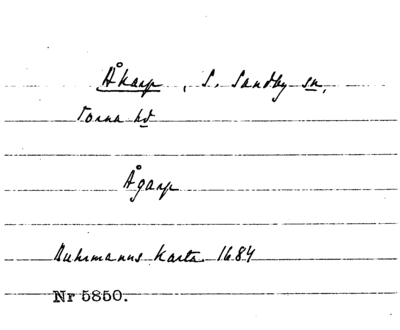 Åkarp, S. Sandby sn,
Torna hd
Ågarp
Buhrmanns Karta 1684
Nr 5850.